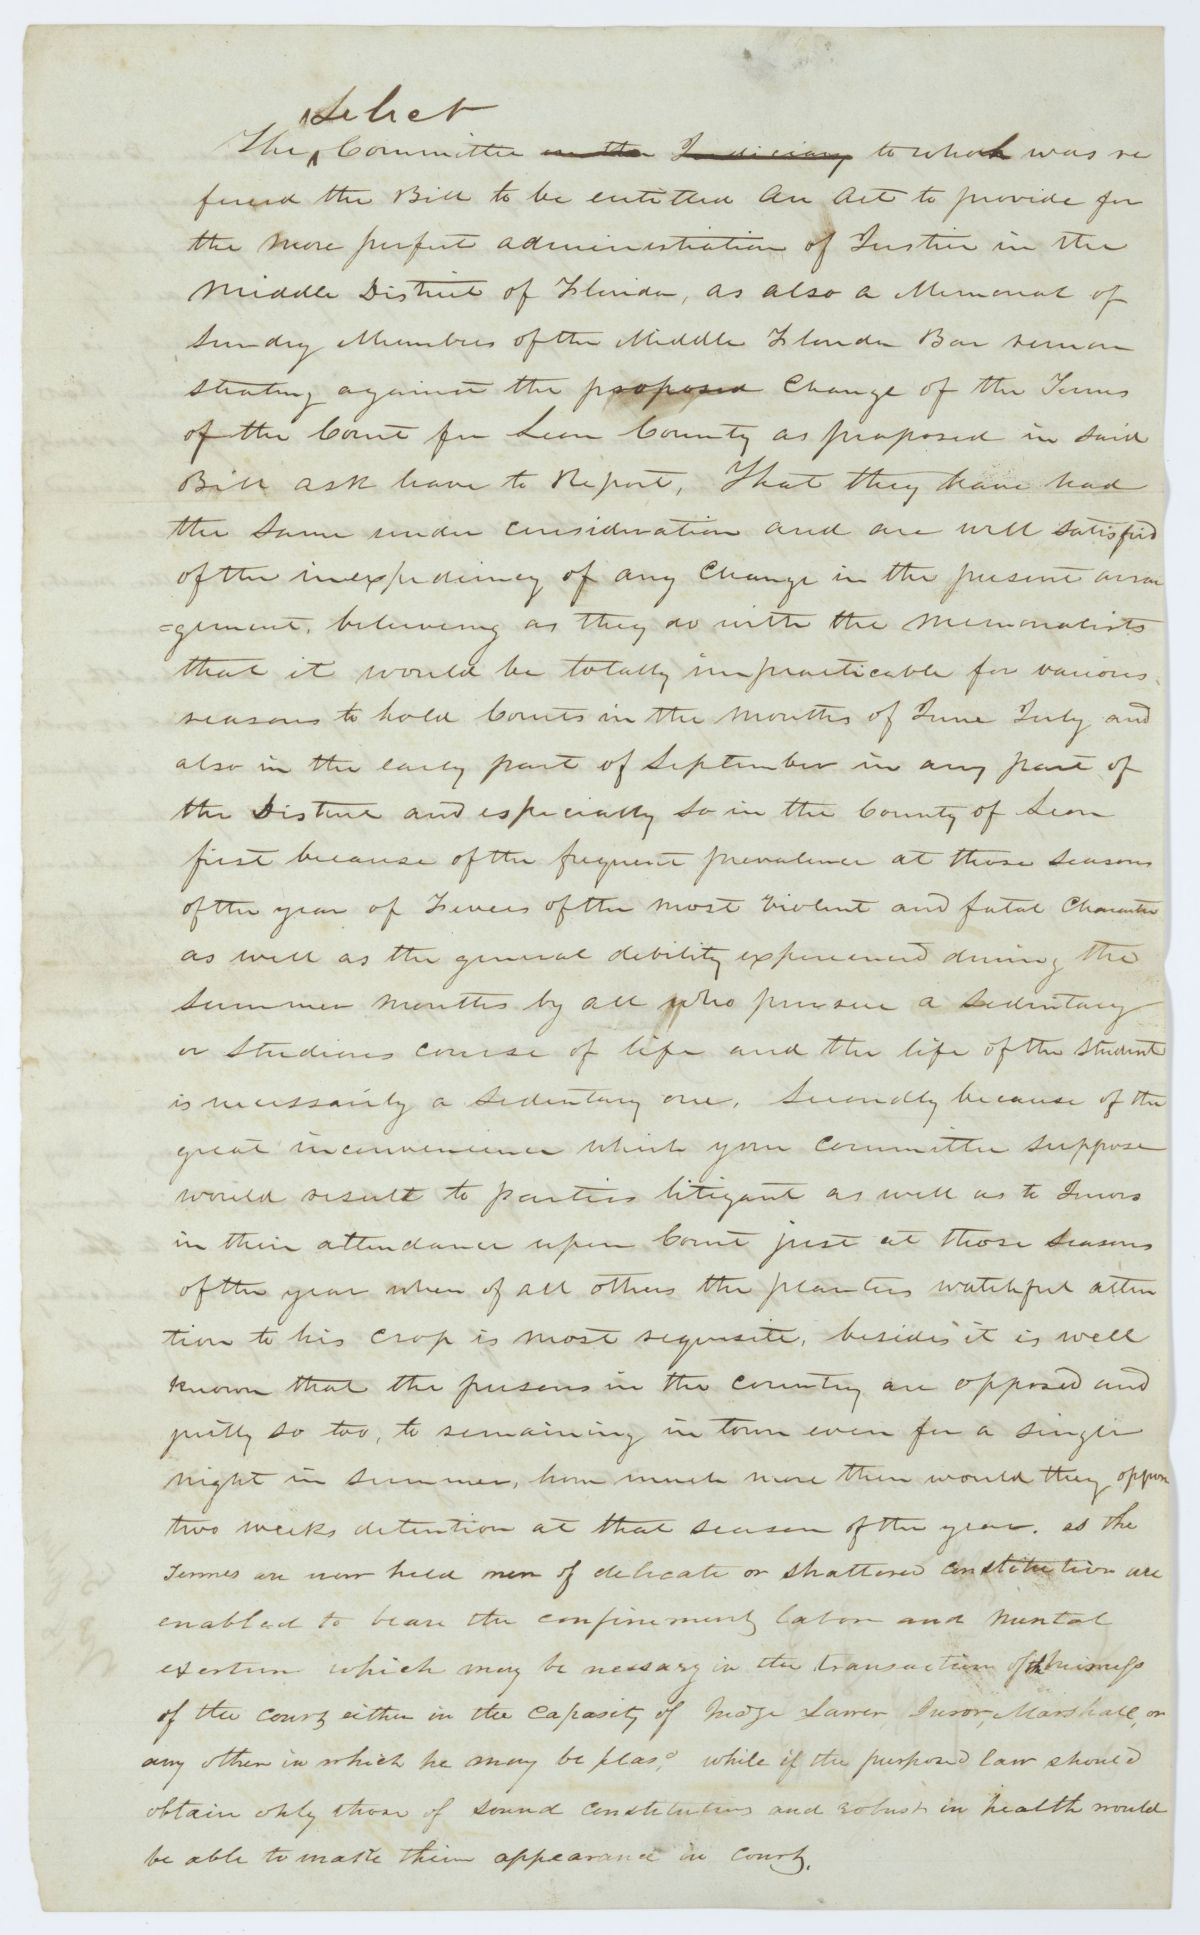 Select
The Committee on the Judiciary to whom was re
fered the Bill to be entitled An Act to provide for
the more perfect administration of Justice in the
Middle District of Florida, as also a Memorial of
Sundry Members of the Middle Florida Bar remon
strating against the proposed Change of the Terms
of the Court for Leon County as proposed in said
Bill ask leave to Report, That they have had
the same under consideration and are well satisfied
of the inexpediency of any Change in the present arran
=gement, believing as they do with the Memorialists
that it would be totally impracticable for various
reasons to hold Courts in the months of June July and
also in the early part of September in any part of
the District and especially so in the County of Leon
first because of the frequent prevalence at those seasons
of the year of Fevers of the most violent and fatal Character
as well as the general debility experienced during the
Summer months by all who pursue a sedentary
or studious course of life and the life of the student
is necessarily a sedentary one, Secondly because of the
great inconvenience which your committee suppose
would result to parties litigant as well as to Jurors
in their attendance upon Court just at those seasons
of the year when of all others the planters watchful atten
tion to his crop is most requisite, besides it is well
known that the persons in the country are opposed and
justly so too, to remaining in town even for a single
night in summer, how much more then would they oppose
two weeks detention at that season of the year. as the
Termes are now held men of delicate or shattered constitution are
enabled to beare the confinement labor and mental
exertion which may be nessary in the transaction of the buisness
of the court either in the capasity of Judge Lawer, Juror, Marshall, or
any other in which he may be plasd, while if the purposed law should
obtain only those of sound constitutions and robust in health would
be able to make their appearance in court.